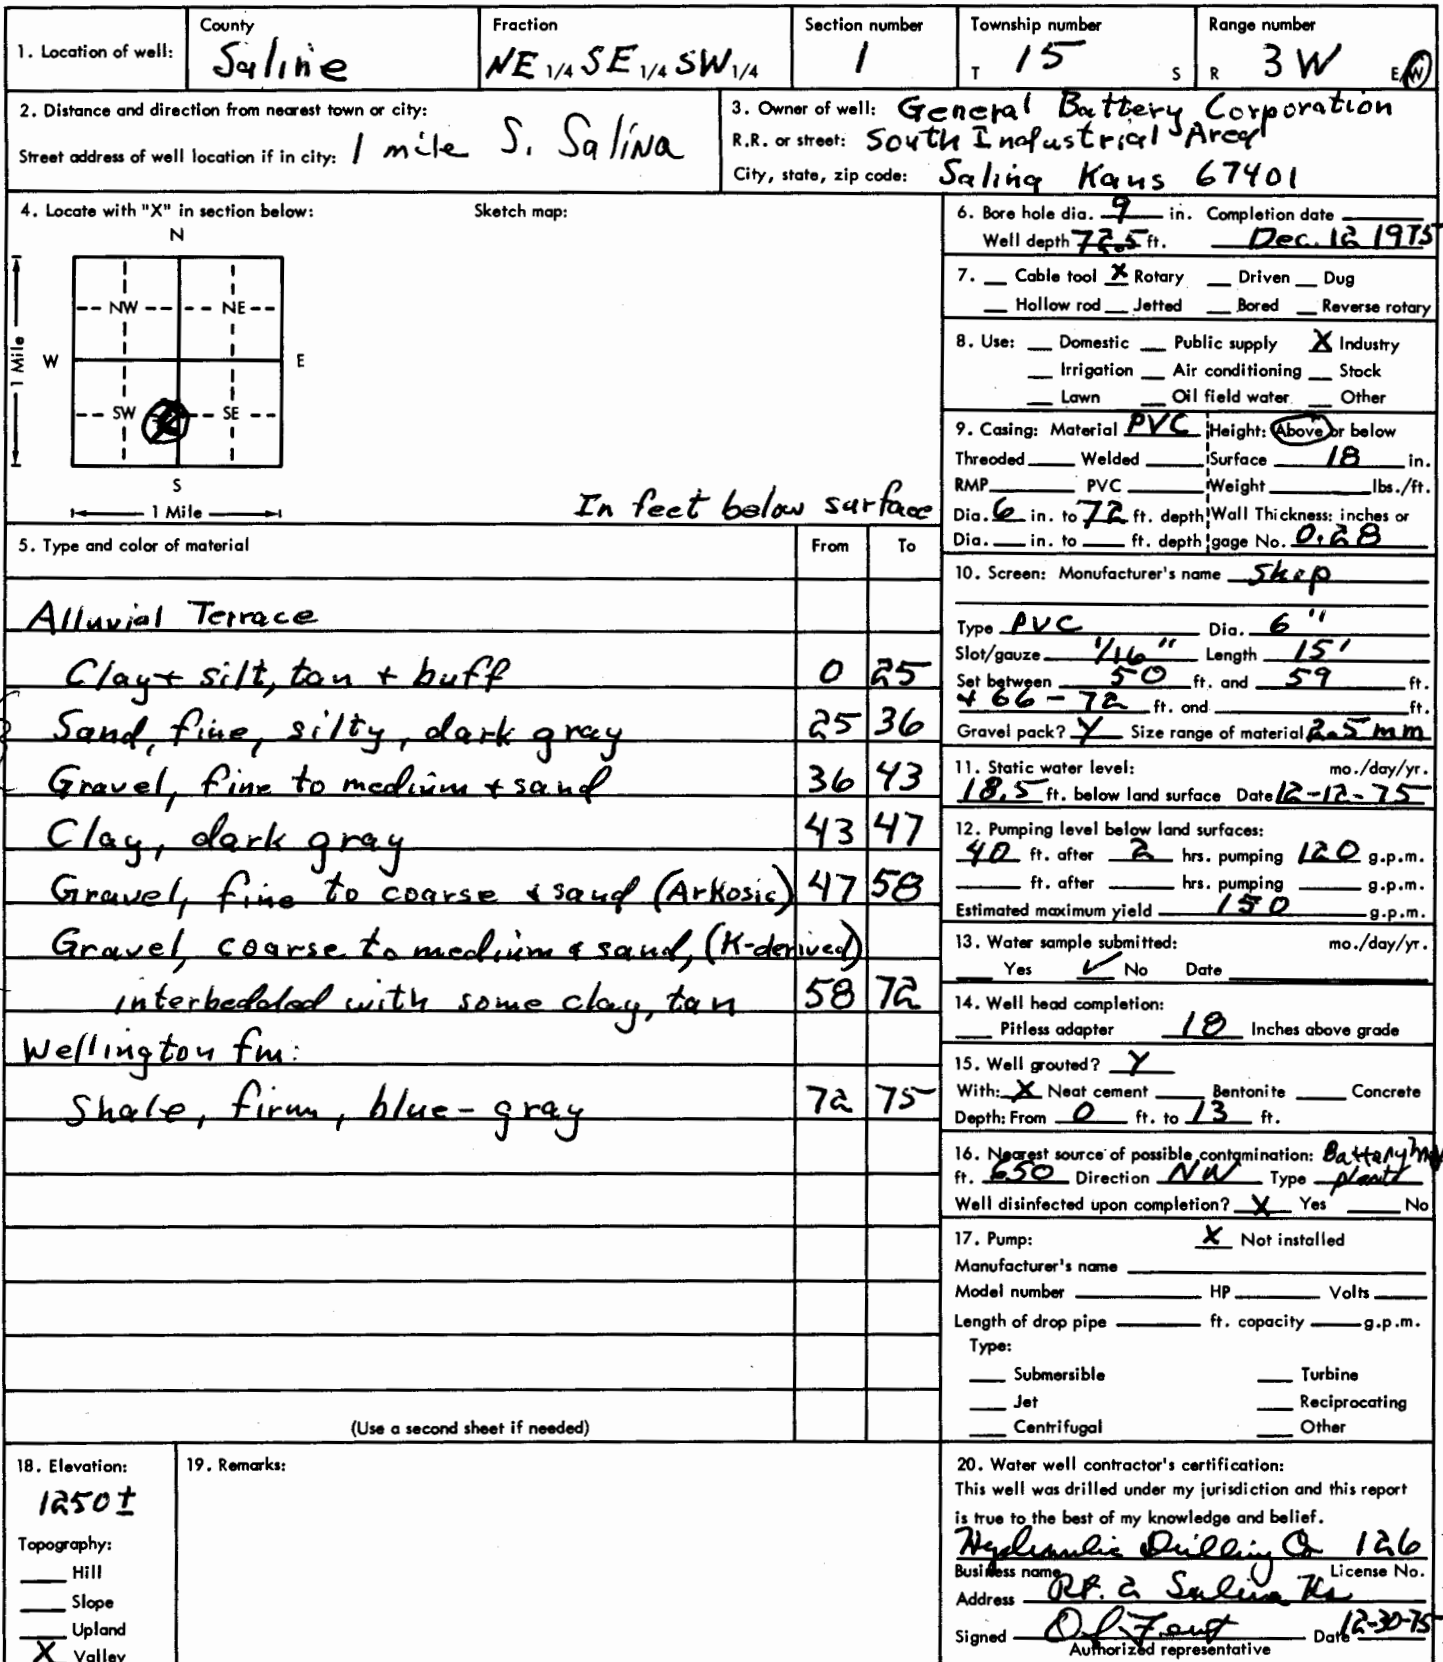 1. Location of well: County Saline Fraction NE 1/4 SE 1/4 SW 1/4 Section number 1 Township number T 15 S Range number R 3 W E/W
2. Distance and direction from nearest town or city:
Street address of well location if in city: 1 mile S. Salina
3. Owner of well: General Battery Corporation
R.R. or street: South Industrial Area
City, state, zip code: Salina Kans 67401
4. Locate with "X" in section below: Sketch map:
N
NW NE
W E
1 Mile
SW X SE
S
1 Mile
In feet below surface
5. Type and color of material From To
Alluvial Terrace
Clay + silt, tan + buff 0 25
Sand, fine, silty, dark gray 25 36
Gravel, fine to medium + sand 36 43
Clay, dark gray 43 47
Gravel, fine to coarse & sand (Arkosic) 47 58
Gravel, coarse to medium & sand, (K-derived)
interbedded with some clay, tan 58 72
Wellington fm:
Shale, firm, blue-gray 72 75
(Use a second sheet if needed)
6. Bore hole dia. 9 in. Completion date
Well depth 72.5 ft. Dec. 12 1975
7. __ Cable tool X Rotary __ Driven __ Dug
__ Hollow rod __ Jetted __ Bored __ Reverse rotary
8. Use: __ Domestic __ Public supply X Industry
__ Irrigation __ Air conditioning __ Stock
__ Lawn __ Oil field water __ Other
9. Casing: Material PVC Height: Above or below
Threaded ____ Welded ____ Surface 18 in.
RMP ____ PVC ____ Weight ____ lbs./ft.
Dia. 6 in. to 72 ft. depth Wall Thickness: inches or
Dia. __ in. to __ ft. depth gage No. 0.28
10. Screen: Manufacturer's name Shop
Type PVC Dia. 6"
Slot/gauze 1/16" Length 15'
Set between 50 ft. and 59 ft.
+ 66 - 72 ft. and ____ ft.
Gravel pack? Y Size range of material 2.5 mm
11. Static water level: mo./day/yr.
18.5 ft. below land surface Date 12-12-75
12. Pumping level below land surfaces:
40 ft. after 2 hrs. pumping 120 g.p.m.
____ ft. after ____ hrs. pumping ____ g.p.m.
Estimated maximum yield 150 g.p.m.
13. Water sample submitted: mo./day/yr.
__ Yes ✓ No Date ____
14. Well head completion:
__ Pitless adapter 18 Inches above grade
15. Well grouted? Y
With: X Neat cement __ Bentonite __ Concrete
Depth: From 0 ft. to 13 ft.
16. Nearest source of possible contamination: Battery
ft. 650 Direction NW Type plant
Well disinfected upon completion? X Yes __ No
17. Pump: X Not installed
Manufacturer's name ____
Model number ____ HP ____ Volts ____
Length of drop pipe ____ ft. capacity ____ g.p.m.
Type:
__ Submersible __ Turbine
__ Jet __ Reciprocating
__ Centrifugal __ Other
18. Elevation:
1250 ±
Topography:
__ Hill
__ Slope
__ Upland
X Valley
19. Remarks:
20. Water well contractor's certification:
This well was drilled under my jurisdiction and this report
is true to the best of my knowledge and belief.
Hydraulic Drilling Co 126
Business name License No.
Address Rt. 2 Salina Ks
Signed Date 12-30-75
Authorized representative